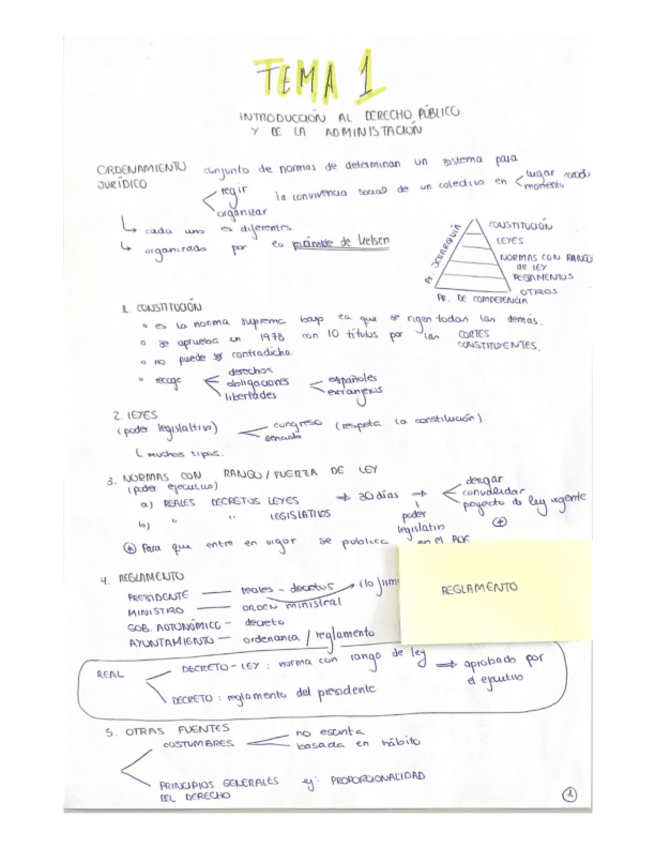 TEMA 1
INTRODUCCIÓN AL DERECHO PÚBLICO
Y DE LA ADMINISTACIÓN
ORDENAMIENTO JURÍDICO conjunto de normas de determinan un sistema para
regir
organizar
la convivencia social de un colectivo en
lugar
momento
cada uno es diferentes
organizado por la pirámide de Kelsen
Pr. JERARQUÍA
CONSTITUCIÓN
LEYES
NORMAS CON RANGO
de LEY
REGLAMENTOS
OTROS
PR. DE COMPETENCIA
1. CONSTITUCIÓN
es la norma suprema bajo la que se rigen todas las demás.
se aprueba en 1978 con 10 títulos por las CORTES
CONSTITUYENTES.
no puede ser contradicha.
recoge
derechos
obligaciones
libertades
españoles
extranjeros
2. LEYES
(poder legislativo)
congreso (respeta la constitución)
senado
muchos tipos.
3. NORMAS CON RANGO/FUERZA DE LEY
(poder ejecutivo)
a) REALES DECRETOS LEYES ⇒ 30 días →
b) " " LEGISLATIVOS
poder
legislativo
convalidar
proyecto de ley urgente
(+)
(+) Para que entre en vigor se publica en el BOE
4. REGLAMENTO
PRESIDENTE — reales - decretos → (lo
MINISTRO — ORDEN ministral
GOB. AUTONÓMICO — decreto
AYUNTAMIENTO — ordenanza / reglamento
REGLAMENTO
REAL
DECRETO - LEY : norma con rango de ley
DECRETO : reglamento del presidente
⇒ aprobado por
el ejecutivo
5. OTRAS FUENTES
COSTUMBRES
no escrita
basada en hábito
PRINCIPIOS GENERALES
DEL DERECHO
ej: PROPORCIONALIDAD
1